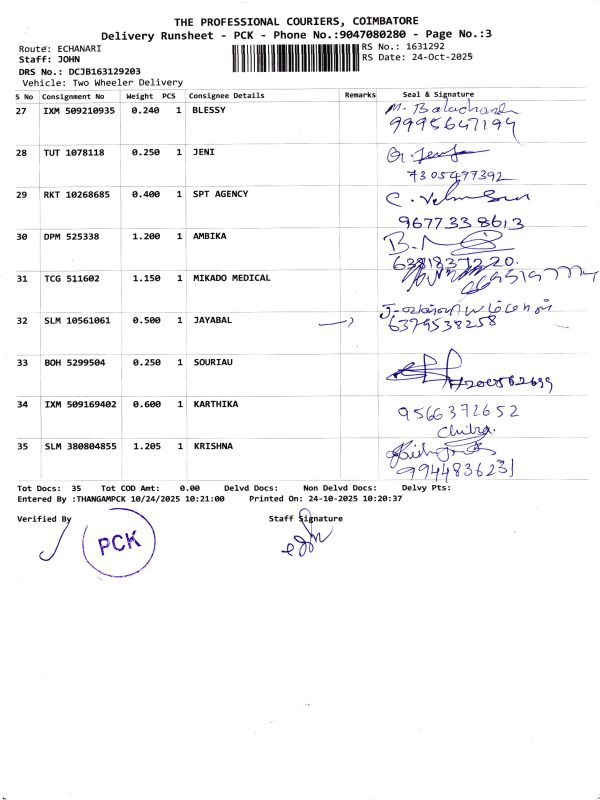 THE PROFESSIONAL COURIERS, COIMBATORE
Delivery Runsheet - PCK - Phone No.:9047080280 - Page No.:3
Route: ECHANARI
RS No.: 1631292
Staff: JOHN
RS Date: 24-Oct-2025
DRS No.: DCJB163129203
Vehicle: Two Wheeler Delivery
S No Consignment No Weight PCS Consignee Details Remarks Seal & Signature
27 IXM 509210935 0.240 1 BLESSY
9995647194
28 TUT 1078118 0.250 1 JENI
7305497392
29 RKT 10268685 0.400 1 SPT AGENCY
9677338613
30 DPM 525338 1.200 1 AMBIKA
6381837220.
31 TCG 511602 1.150 1 MIKADO MEDICAL
32 SLM 10561061 0.500 1 JAYABAL
6379538258
33 BOH 5299504 0.250 1 SOURIAU
34 IXM 509169402 0.600 1 KARTHIKA 9566372652
Chitra.
35 SLM 380804855 1.205 1 KRISHNA
9944836231
Tot Docs: 35 Tot COD Amt: 0.00 Delvd Docs: Non Delvd Docs: Delvy Pts:
Entered By :THANGAMPCK 10/24/2025 10:21:00 Printed On: 24-10-2025 10:20:37
Verified By Staff Signature
PCK